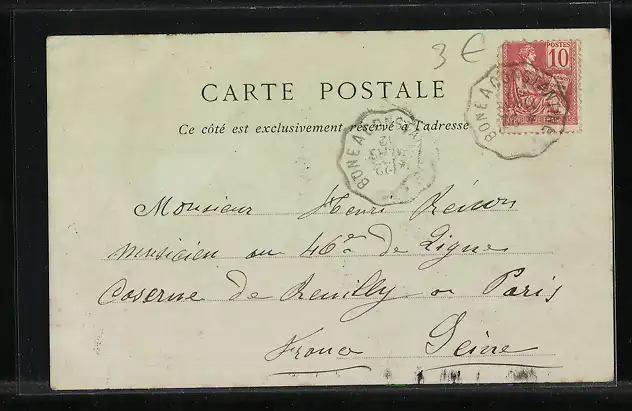 3 €
POSTES
10
CARTE POSTALE
Ce côté est exclusivement réservé à l'adresse
BONE A CONSTANTINE
BONE A CONSTANTINE
Monsieur Henri
musicien au 46e de Ligne
Caserne de Reuilly a Paris
France Seine